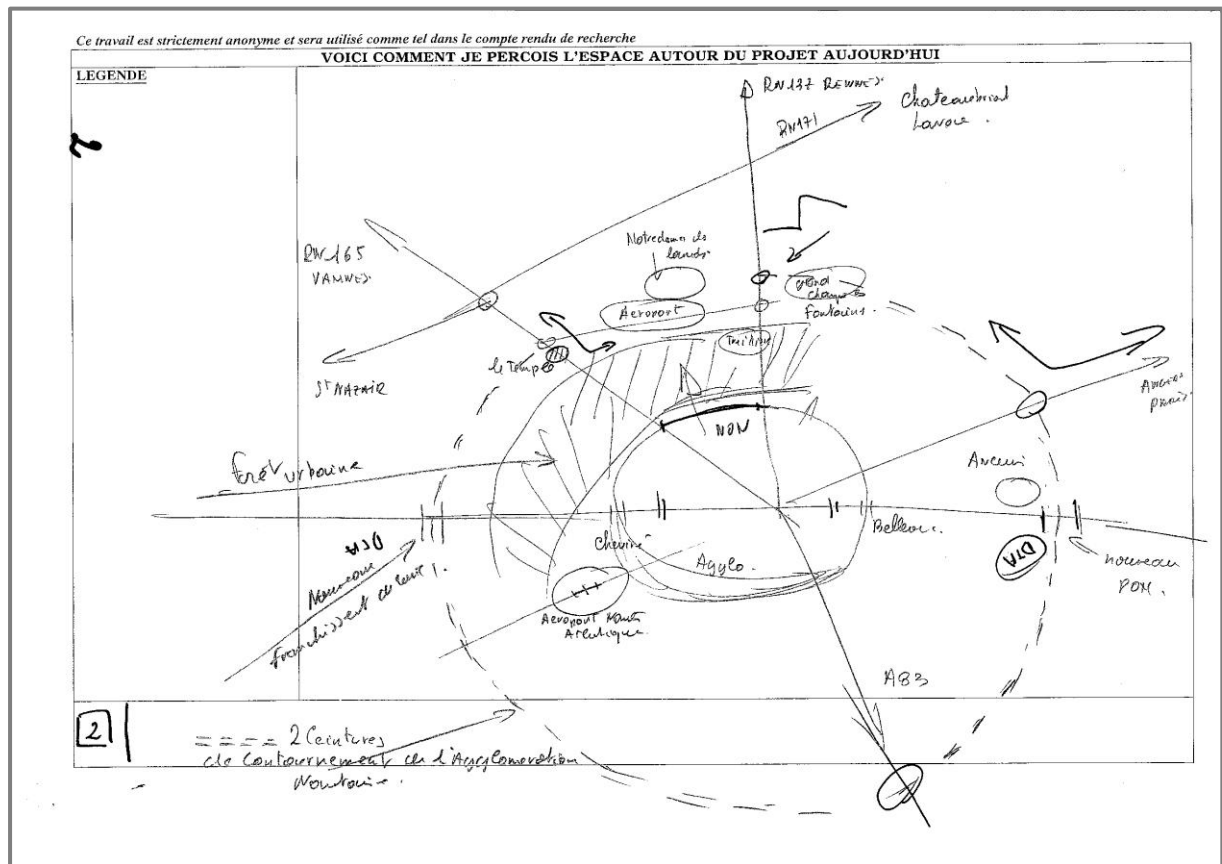 Ce travail est strictement anonyme et sera utilisé comme tel dans le compte rendu de recherche
VOICI COMMENT JE PERCOIS L'ESPACE AUTOUR DU PROJET AUJOURD'HUI
LEGENDE
RN137 RENNES
RN171
Chateaubriand
Lavane
RN165
VANNES
Notre dame des
landes
Aeroport
Grand
Champs
Fontaines
Treillères
le Temple
St NAZAIR
NON
ANGERS
PARIS
forêt urbaine
Ancenis
Bellevue
Cheviré
Agglo.
DTA
DTA
Nouveau
franchissement de Loire
nouveau
PON
Aeroport Nantes
Atlantique
A83
2
2 Ceintures
de Contournement de l'Agglomeration
Nantaise.